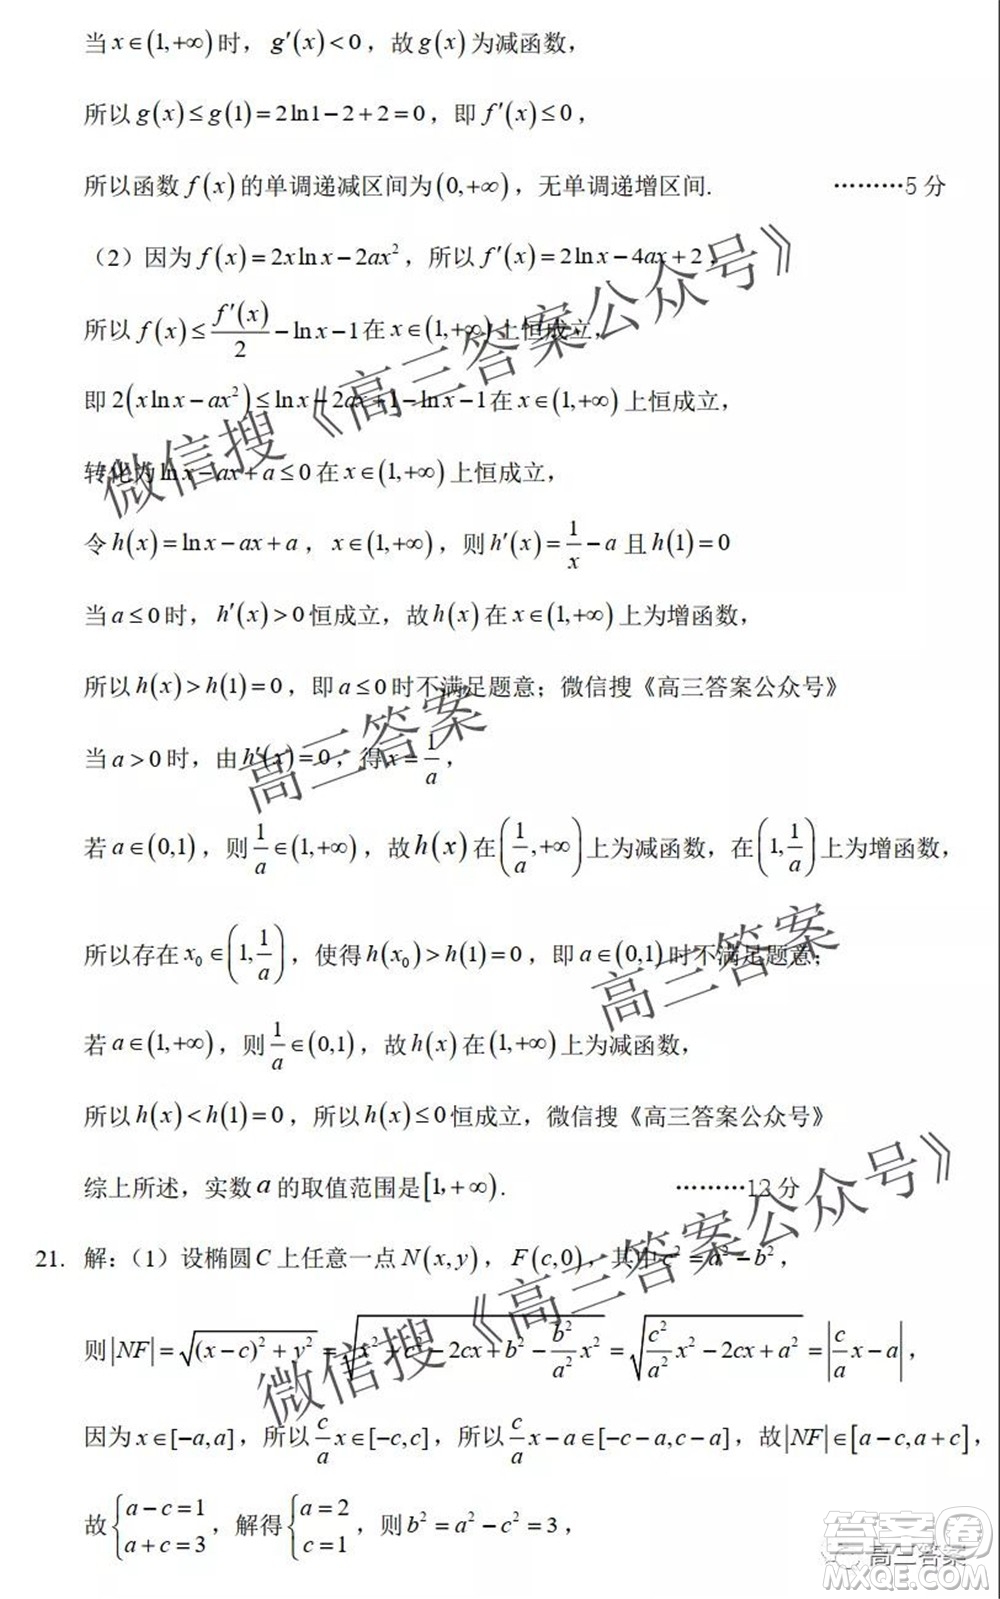 当 x∈(1,+∞) 时，g′(x)<0，故 g(x) 为减函数，
所以 g(x)≤g(1)=2ln1−2+2=0，即 f′(x)≤0，
所以函数 f(x) 的单调递减区间为 (0,+∞)，无单调递增区间. ………5 分
（2）因为 f(x)=2xlnx−2ax²，所以 f′(x)=2lnx−4ax+2，
所以 f(x)≤f′(x)/2−lnx−1 在 x∈(1,+∞) 上恒成立，
即 2(xlnx−ax²)≤lnx−2ax+1−lnx−1 在 x∈(1,+∞) 上恒成立，
转化为 lnx−ax+a≤0 在 x∈(1,+∞) 上恒成立，
令 h(x)=lnx−ax+a，x∈(1,+∞)，则 h′(x)=1/x−a 且 h(1)=0
当 a≤0 时，h′(x)>0 恒成立，故 h(x) 在 x∈(1,+∞) 上为增函数，
所以 h(x)>h(1)=0，即 a≤0 时不满足题意；微信搜《高三答案公众号》
当 a>0 时，由 h′(x)=0，得 x=1/a，
若 a∈(0,1)，则 1/a∈(1,+∞)，故 h(x) 在 (1/a,+∞) 上为减函数，在 (1,1/a) 上为增函数，
所以存在 x₀∈(1,1/a)，使得 h(x₀)>h(1)=0，即 a∈(0,1) 时不满足题意；
若 a∈(1,+∞)，则 1/a∈(0,1)，故 h(x) 在 (1,+∞) 上为减函数，
所以 h(x)<h(1)=0，所以 h(x)≤0 恒成立，微信搜《高三答案公众号》
综上所述，实数 a 的取值范围是 [1,+∞). ………12 分
21. 解：（1）设椭圆 C 上任意一点 N(x,y)，F(c,0)，其中 c²=a²−b²，
则 |NF|=√((x−c)²+y²)=√(x²+c²−2cx+b²−(b²/a²)x²)=√((c²/a²)x²−2cx+a²)=|(c/a)x−a|，
因为 x∈[−a,a]，所以 (c/a)x∈[−c,c]，所以 (c/a)x−a∈[−c−a,c−a]，故 |NF|∈[a−c,a+c]，
故 {a−c=1
a+c=3，解得 {a=2
c=1，则 b²=a²−c²=3，
微信搜《高三答案公众号》
高三答案
高三答案
微信搜《高三答案公众号》
答案圈
高三答案
MXQE.COM